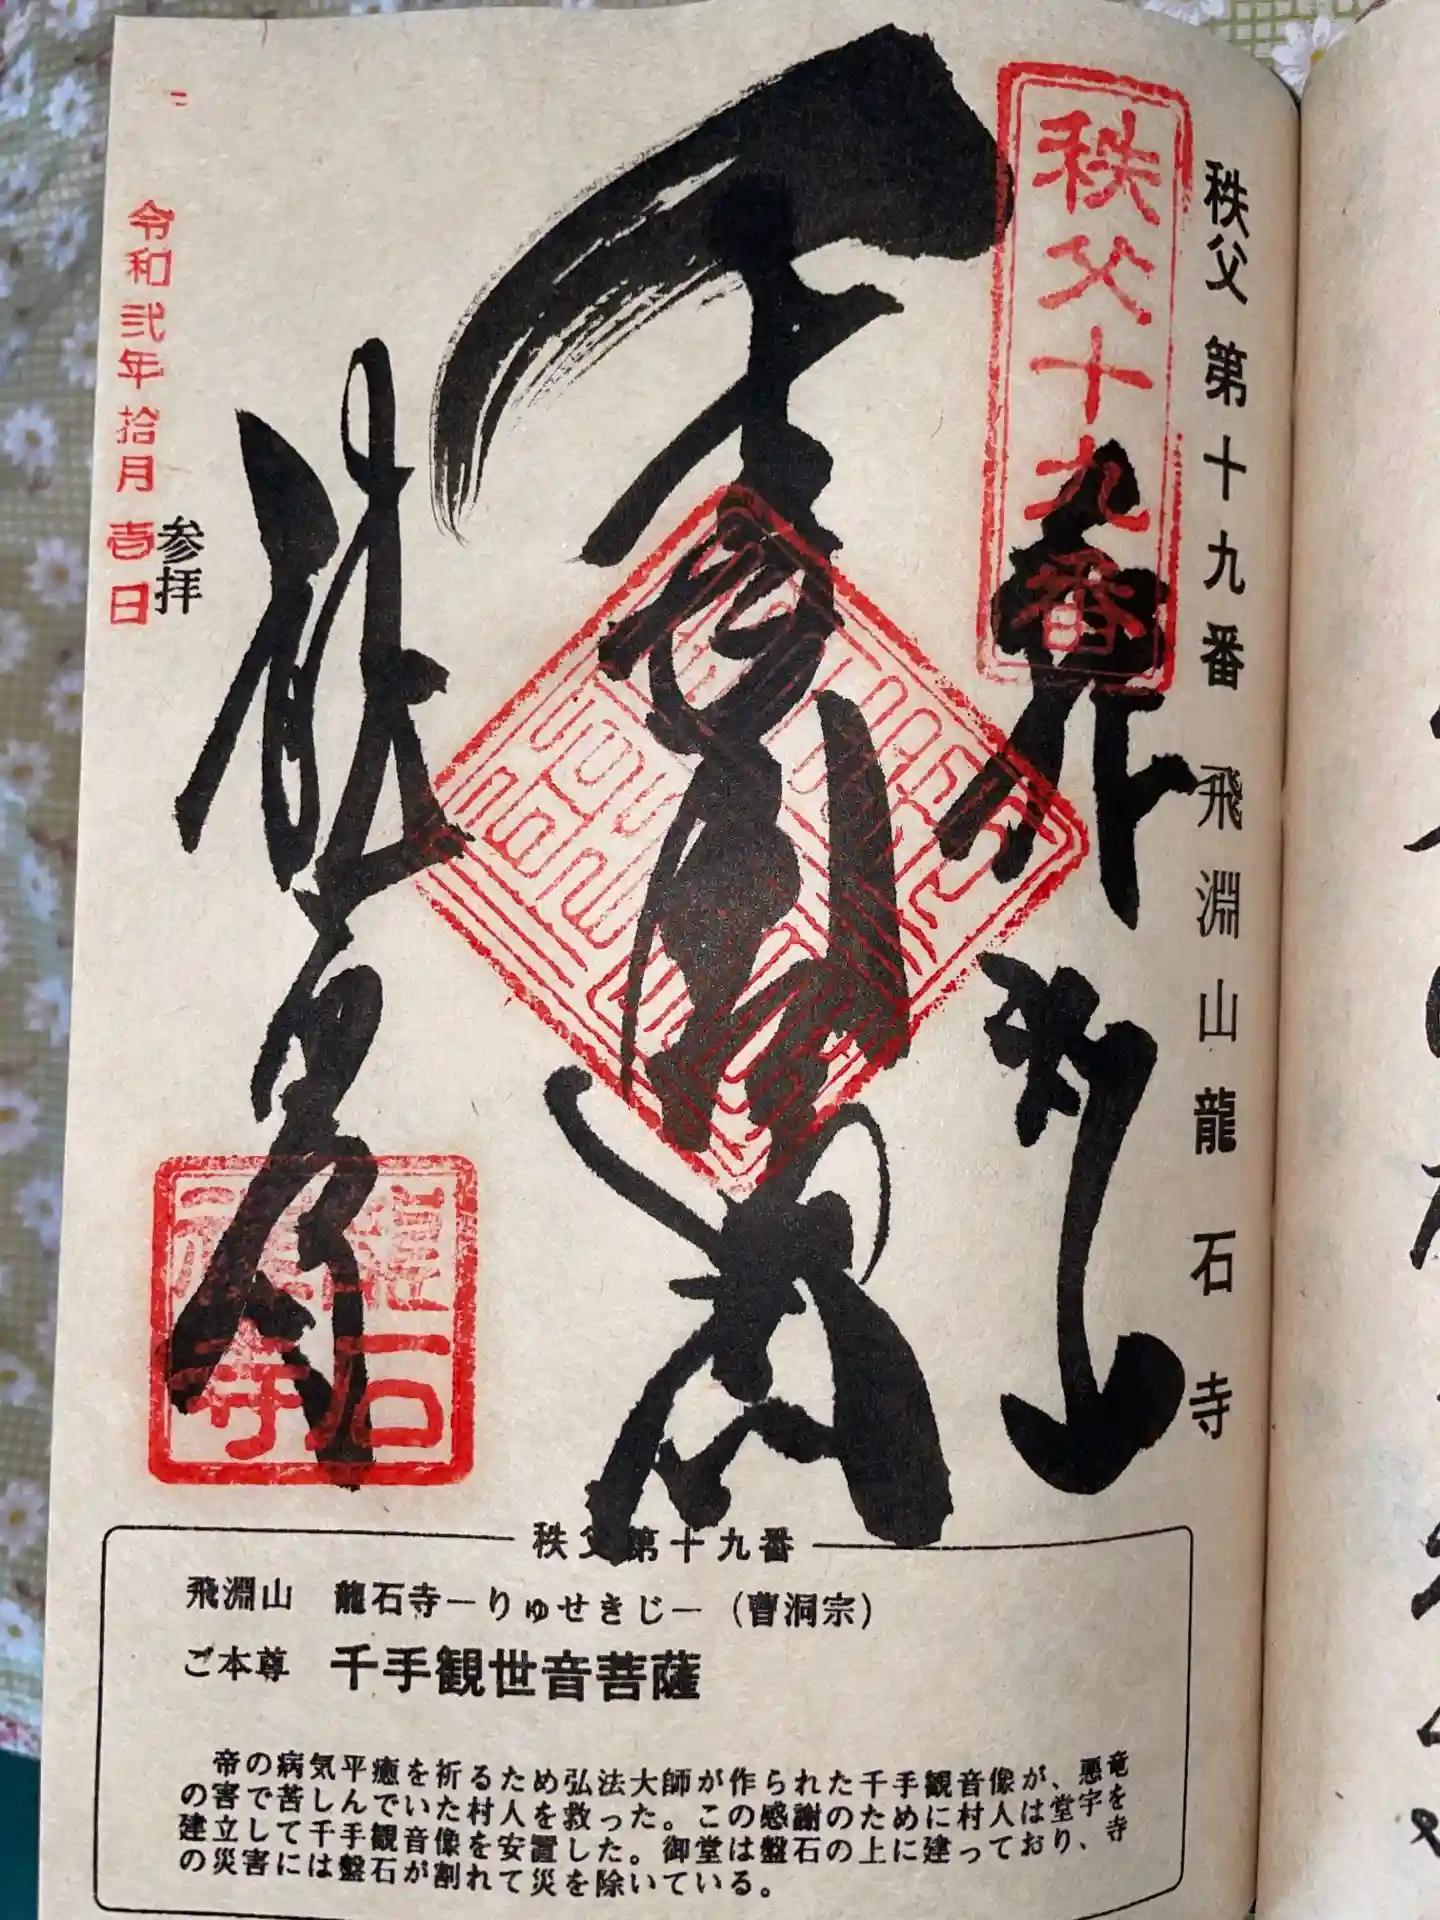 秩父第十九番 飛淵山龍石寺
秩父十九番
奉拝
龍石寺
令和弐年拾月壱日
参拝
龍石寺
秩父第十九番
飛淵山 龍石寺ーりゅせきじー(曹洞宗)
ご本尊 千手観世音菩薩
帝の病気平癒を祈るため弘法大師が作られた千手観音像が、悪竜
の害で苦しんでいた村人を救った。この感謝のために村人は堂宇を
建立して千手観音像を安置した。御堂は盤石の上に建っており、寺
の災害には盤石が割れて災を除いている。